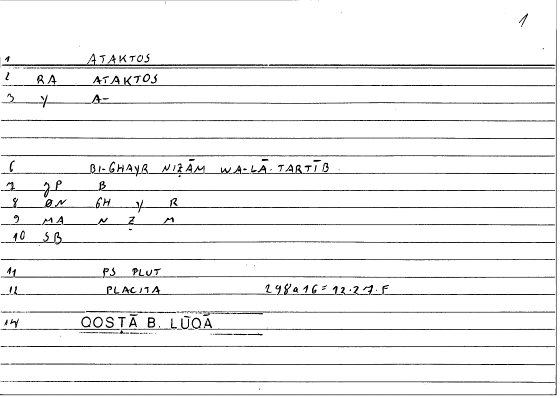 1
1 ATAKTOS
2 RA ATAKTOS
3 Y A-
6 BI-GHAYR NIẒĀM WA-LĀ TARTĪB
7 JP B
8 ØN GH Y R
9 MA N Ẓ M
10 SB
11 PS PLUT
12 PLACITA 298a16=12.27.F
14 QOSṬĀ B. LŪQĀ